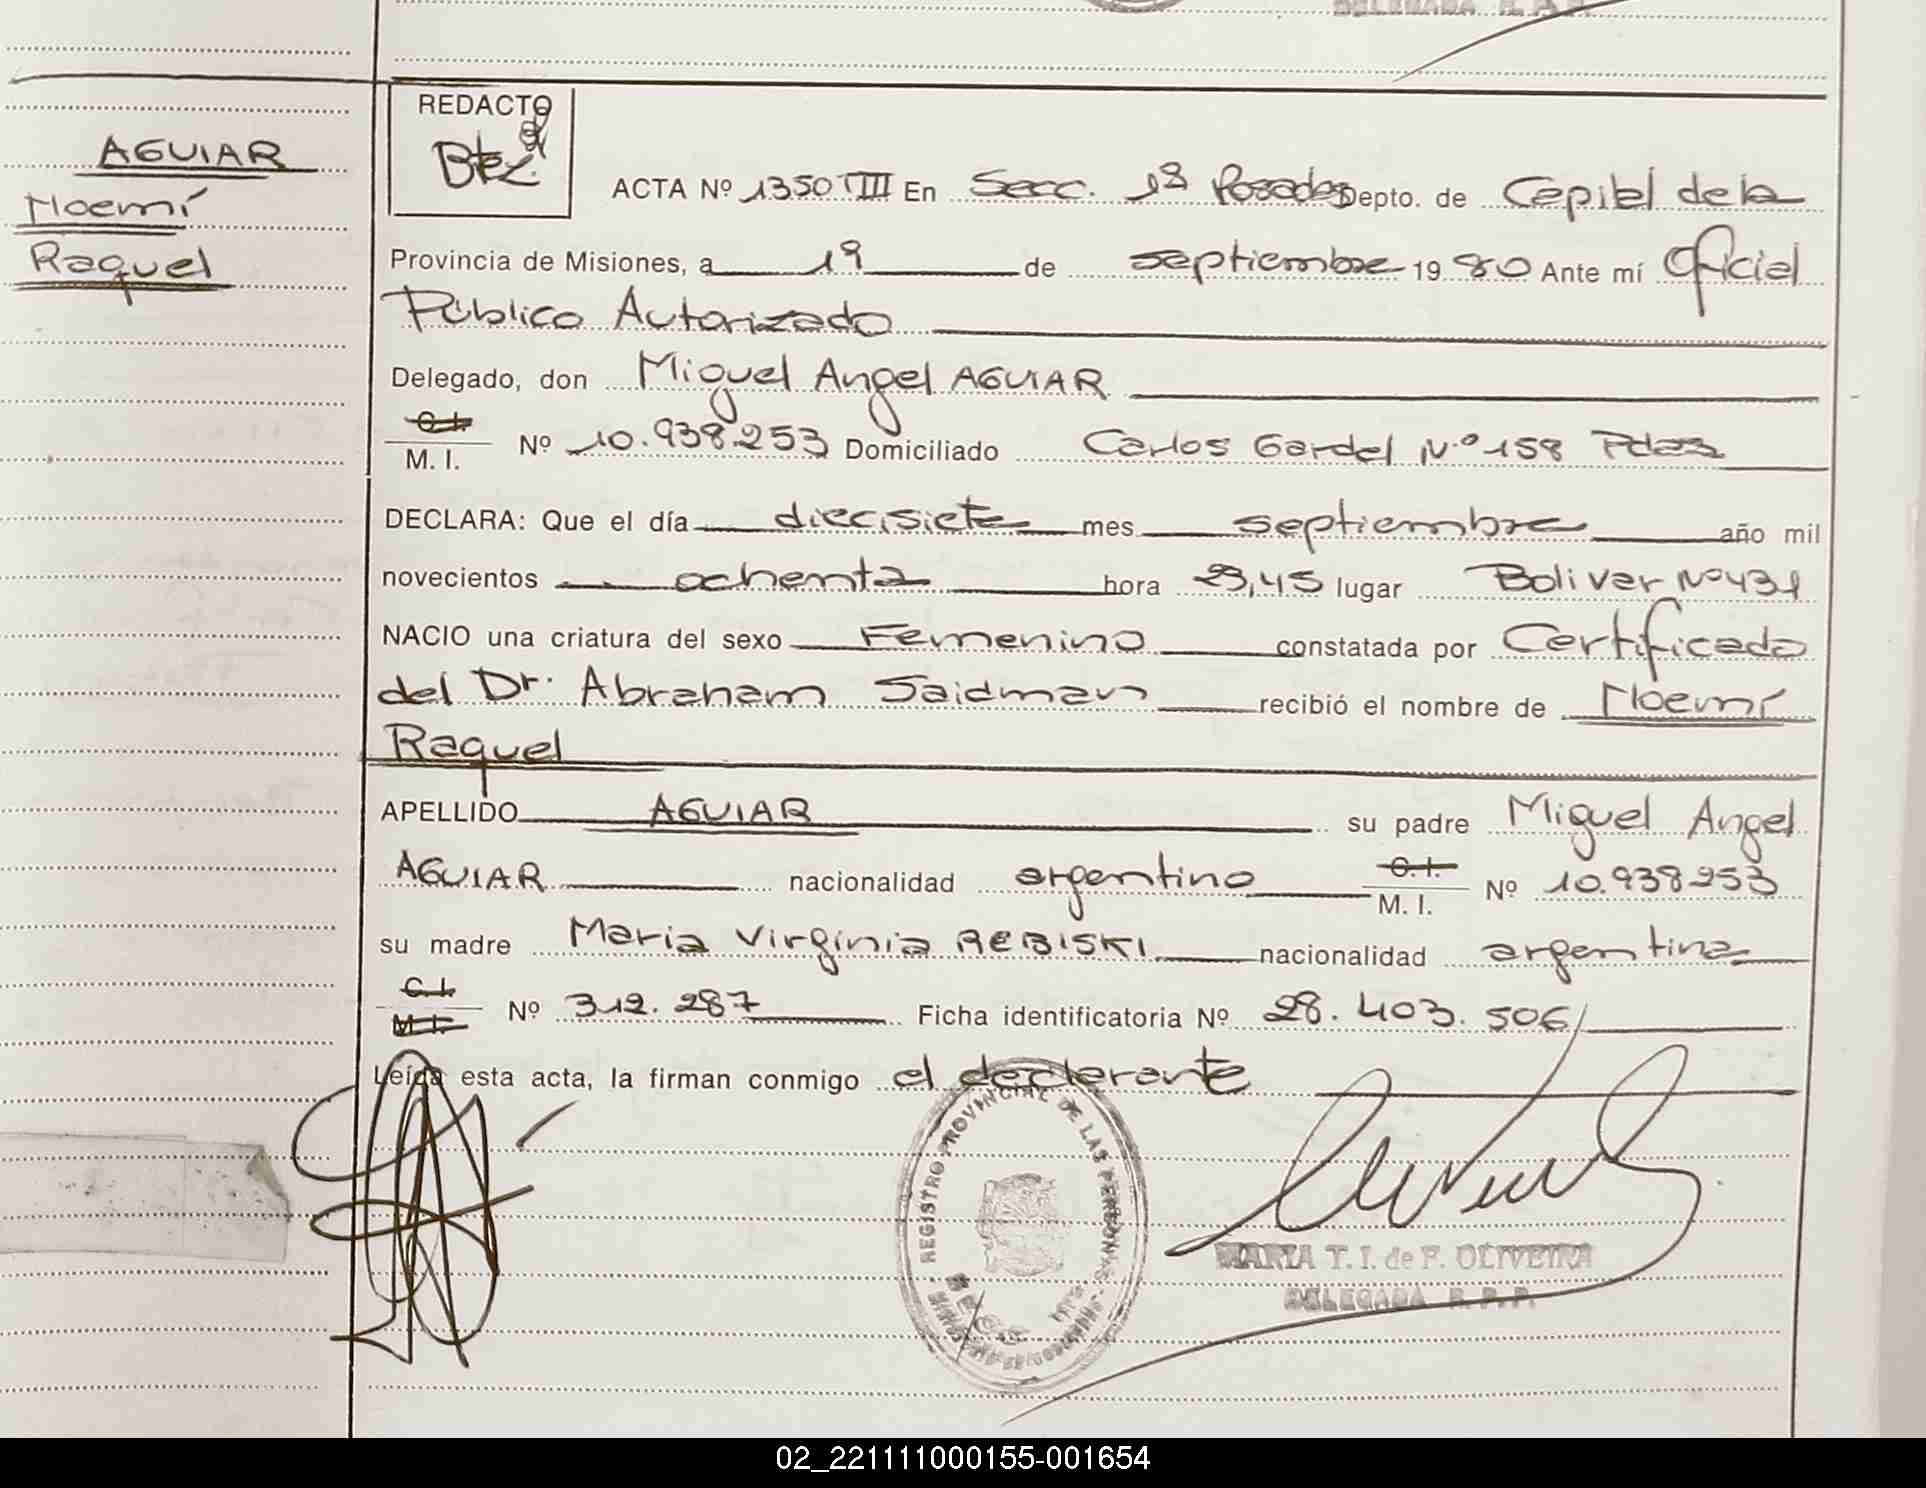 DELEGADA R. P. P.
AGUIAR
Noemí
Raquel
REDACTO
Btez.
ACTA Nº 1350 TIII En Secc. 1ª Posadas Depto. de Capital de la
Provincia de Misiones, a 19 de septiembre 1980 Ante mí Oficial
Público Autorizado
Delegado, don Miguel Angel AGUIAR
C.I.
M. I. Nº 10.938.253 Domiciliado Carlos Gardel Nº 158 Pdas
DECLARA: Que el día diecisiete mes septiembre año mil
novecientos ochenta hora 23,45 lugar Bolivar Nº 431
NACIO una criatura del sexo Femenino constatada por Certificado
del Dr. Abraham Saidman recibió el nombre de Noemí
Raquel
APELLIDO AGUIAR su padre Miguel Angel
AGUIAR nacionalidad argentino C.I. M. I. Nº 10.938.253
su madre Maria Virginia REBISKI nacionalidad argentina
C.I.
M.I. Nº 312.287 Ficha identificatoria Nº 28.403.506
Leída esta acta, la firman conmigo el declarante
REGISTRO PROVINCIAL DE LAS PERSONAS
MARIA T. I. de F. OLIVEIRA
DELEGADA R. P. P.
02_221111000155-001654